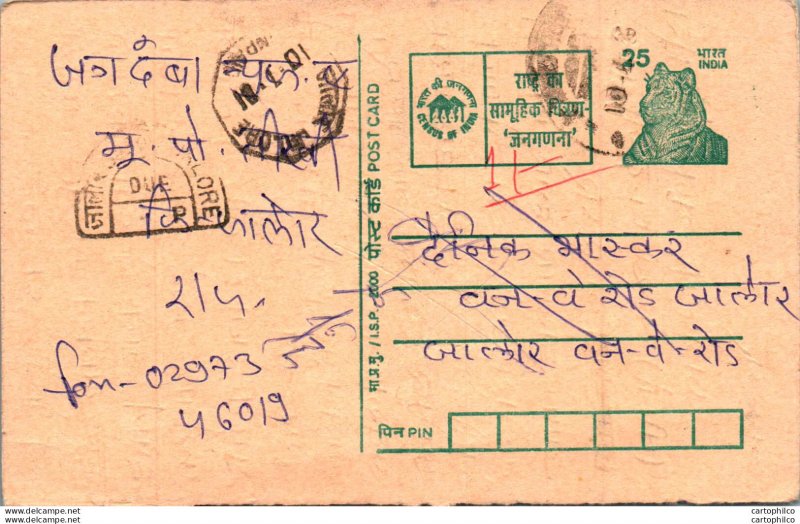 जगदंबा
मु. पो.
जि. जालोर
राज.
fon-02973
46019
10
JALORE
DUE
P.
LORE
भारत की जनगणना
CENSUS OF INDIA
राष्ट्र का
सामूहिक चित्रण-
'जनगणना'
25
भारत
INDIA
मा.प्र.मु./I.S.P. 2000 पोस्ट कार्ड POST CARD
दैनिक भास्कर
वन-वे रोड जालोर
जालोर वन-वे-रोड
पिन PIN
cartophilco
cartophilco